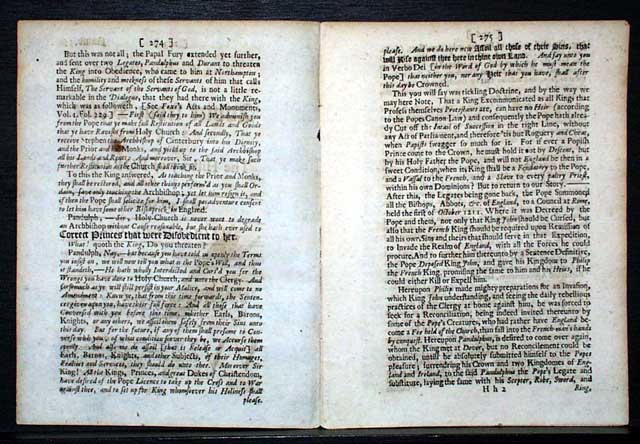 [ 274 ]
But this was not all; the Papal Fury extended yet further,
and sent over two Legates, Pandulphus and Durant to threaten
the King into Obedience, who came to him at Northampton;
and the humility and meekness of these Servants of him that calls
Himself, The Servant of the Servants of God, is not a little re-
markable in the Dialogue, that they had there with the King,
which was as followeth: [See Fox's Acts and Monuments,
Vol. 1. Fol. 229] — First (said they to him) We admonish you
from the Pope that ye make full Restitution of all Lands and Goods
that ye have from Holy Church: And Secondly, That ye
receive Stephen the Archbishop of Canterbury into his Dignity,
and the Prior and his Monks, and yield up to the said Archbishop
all his Lands and Rents: And moreover, Sir, That ye make such
further Restitution as the Church shall
To this the King answered, As touching the Prior and Monks,
they shall be restored, and all other things performed as you shall Or-
dain, save only touching the Archbishop; yet let him resign it, and
if then the Pope shall Intreat for him, I shall peradventure consent
to let him have some other Bishoprick in England.
Pandulph, Sir, Holy Church is never wont to degrade
an Archbishop without Cause reasonable, but she hath ever used to
Correct Princes that were Disobedient to her.
What! quoth the King, Do you threaten?
Pandulph, Nay, but because you have told us openly the Terms
you insist on, we will now tell you what is the Pope's Will, and thus
it standeth,—He hath wholly Interdicted and Curs'd you for the
Wrongs you have done to Holy Church, and unto the Clergy. And
forasmuch as ye will still persist in your Malice, and will come to no
Amendment: Know ye, that from this time forwards, the Sentence
given upon you, have their full force: And all those that have
Conversed with you before this time, whether Earls, Barons,
Knights, or any others, we assoil them safely from their Sins unto
this day. But for the future, if any of them shall presume to Con-
verse with you, of what condition soever they be, we Accurse them
openly. And assume do assoil [that is Release or Acquit] all
Earls, Barons, Knights, and other Subjects, of their Homages,
Fealties and Services, they should do unto thee. Moreover Sir
King! All the Kings, Princes, and great Dukes of Christendom,
have desired of the Pope Licence to take up the Cross and to War
against thee, and to set up King whomsoever his Holiness shall
please.
[ 275 ]
please. And we do here now Assoil all those of their Sins, that
will Rise against thee here in thine own Land. And say unto you
in Verbo Dei [in the Word of God by which he must mean the
Pope] that neither you, nor any Heir that you have, shall after
this day be Crowned.
This you will say was tickling Doctrine, and by the way we
may here Note, That a King Excommunicated as all Kings that
Profess themselves Protestants are, can have no Heir (according
to the Popes Canon Law) and consequently the Pope hath alrea-
dy Cut off the Intail of Succession in the right Line, without
any Act of Parliament, and therefore 'tis but Roguery and Cheat,
when Papists swagger so much for it. For if ever a Popish
Prince come to the Crown, he must hold it not by Descent, but
by his Holy Father the Pope, and will not England be then in a
sweet Condition, when its King shall be a Feudatory to the Pope,
and a Vassal to the French, and a Slave to every paltry Priest,
within his own Dominions? But to return to our Story.
After this, the Legates being gone back, the Pope Summoned
all the Bishops, Abbots, &c. of England, to a Council at Rome,
held the first of October 1211. Where it was Decreed by the
Pope and them, not only that King John should be Cursed, but
also that the French King should be required upon Remission of
all his own Sins and theirs that should serve in that Expedition,
to Invade the Realm of England, with all the Forces he could
procure. And to further him thereunto by a Sentence Definitive,
the Pope Deposed King John, and gave his Kingdom to Philip
the French King, promising the same to him and his Heirs, if he
could either Kill or Expell him.
Hereupon Philip made mighty preparations for an Invasion,
which King John understanding, and seeing the daily rebellious
practices of the Clergy at home against him, he was forced to
seek for a Reconciliation, being indeed invited thereunto by
some of the Pope's Creatures, who had rather have England be-
come a Fee held of the Church, than fall into the French-man's hands
by conquest. Hereupon Pandulphus, is desired to come over again,
whom the King met at Dover, but no Reconcilement could be
obtained, until he absolutely submitted himself to the Popes
pleasure; surrendring his Crown and two Kingdomes of Eng-
land and Ireland, to the said Pandulph the Pope's Legate and
Substitute, laying the same with his Scepter, Robe, Sword, and
H h 2 Ring,